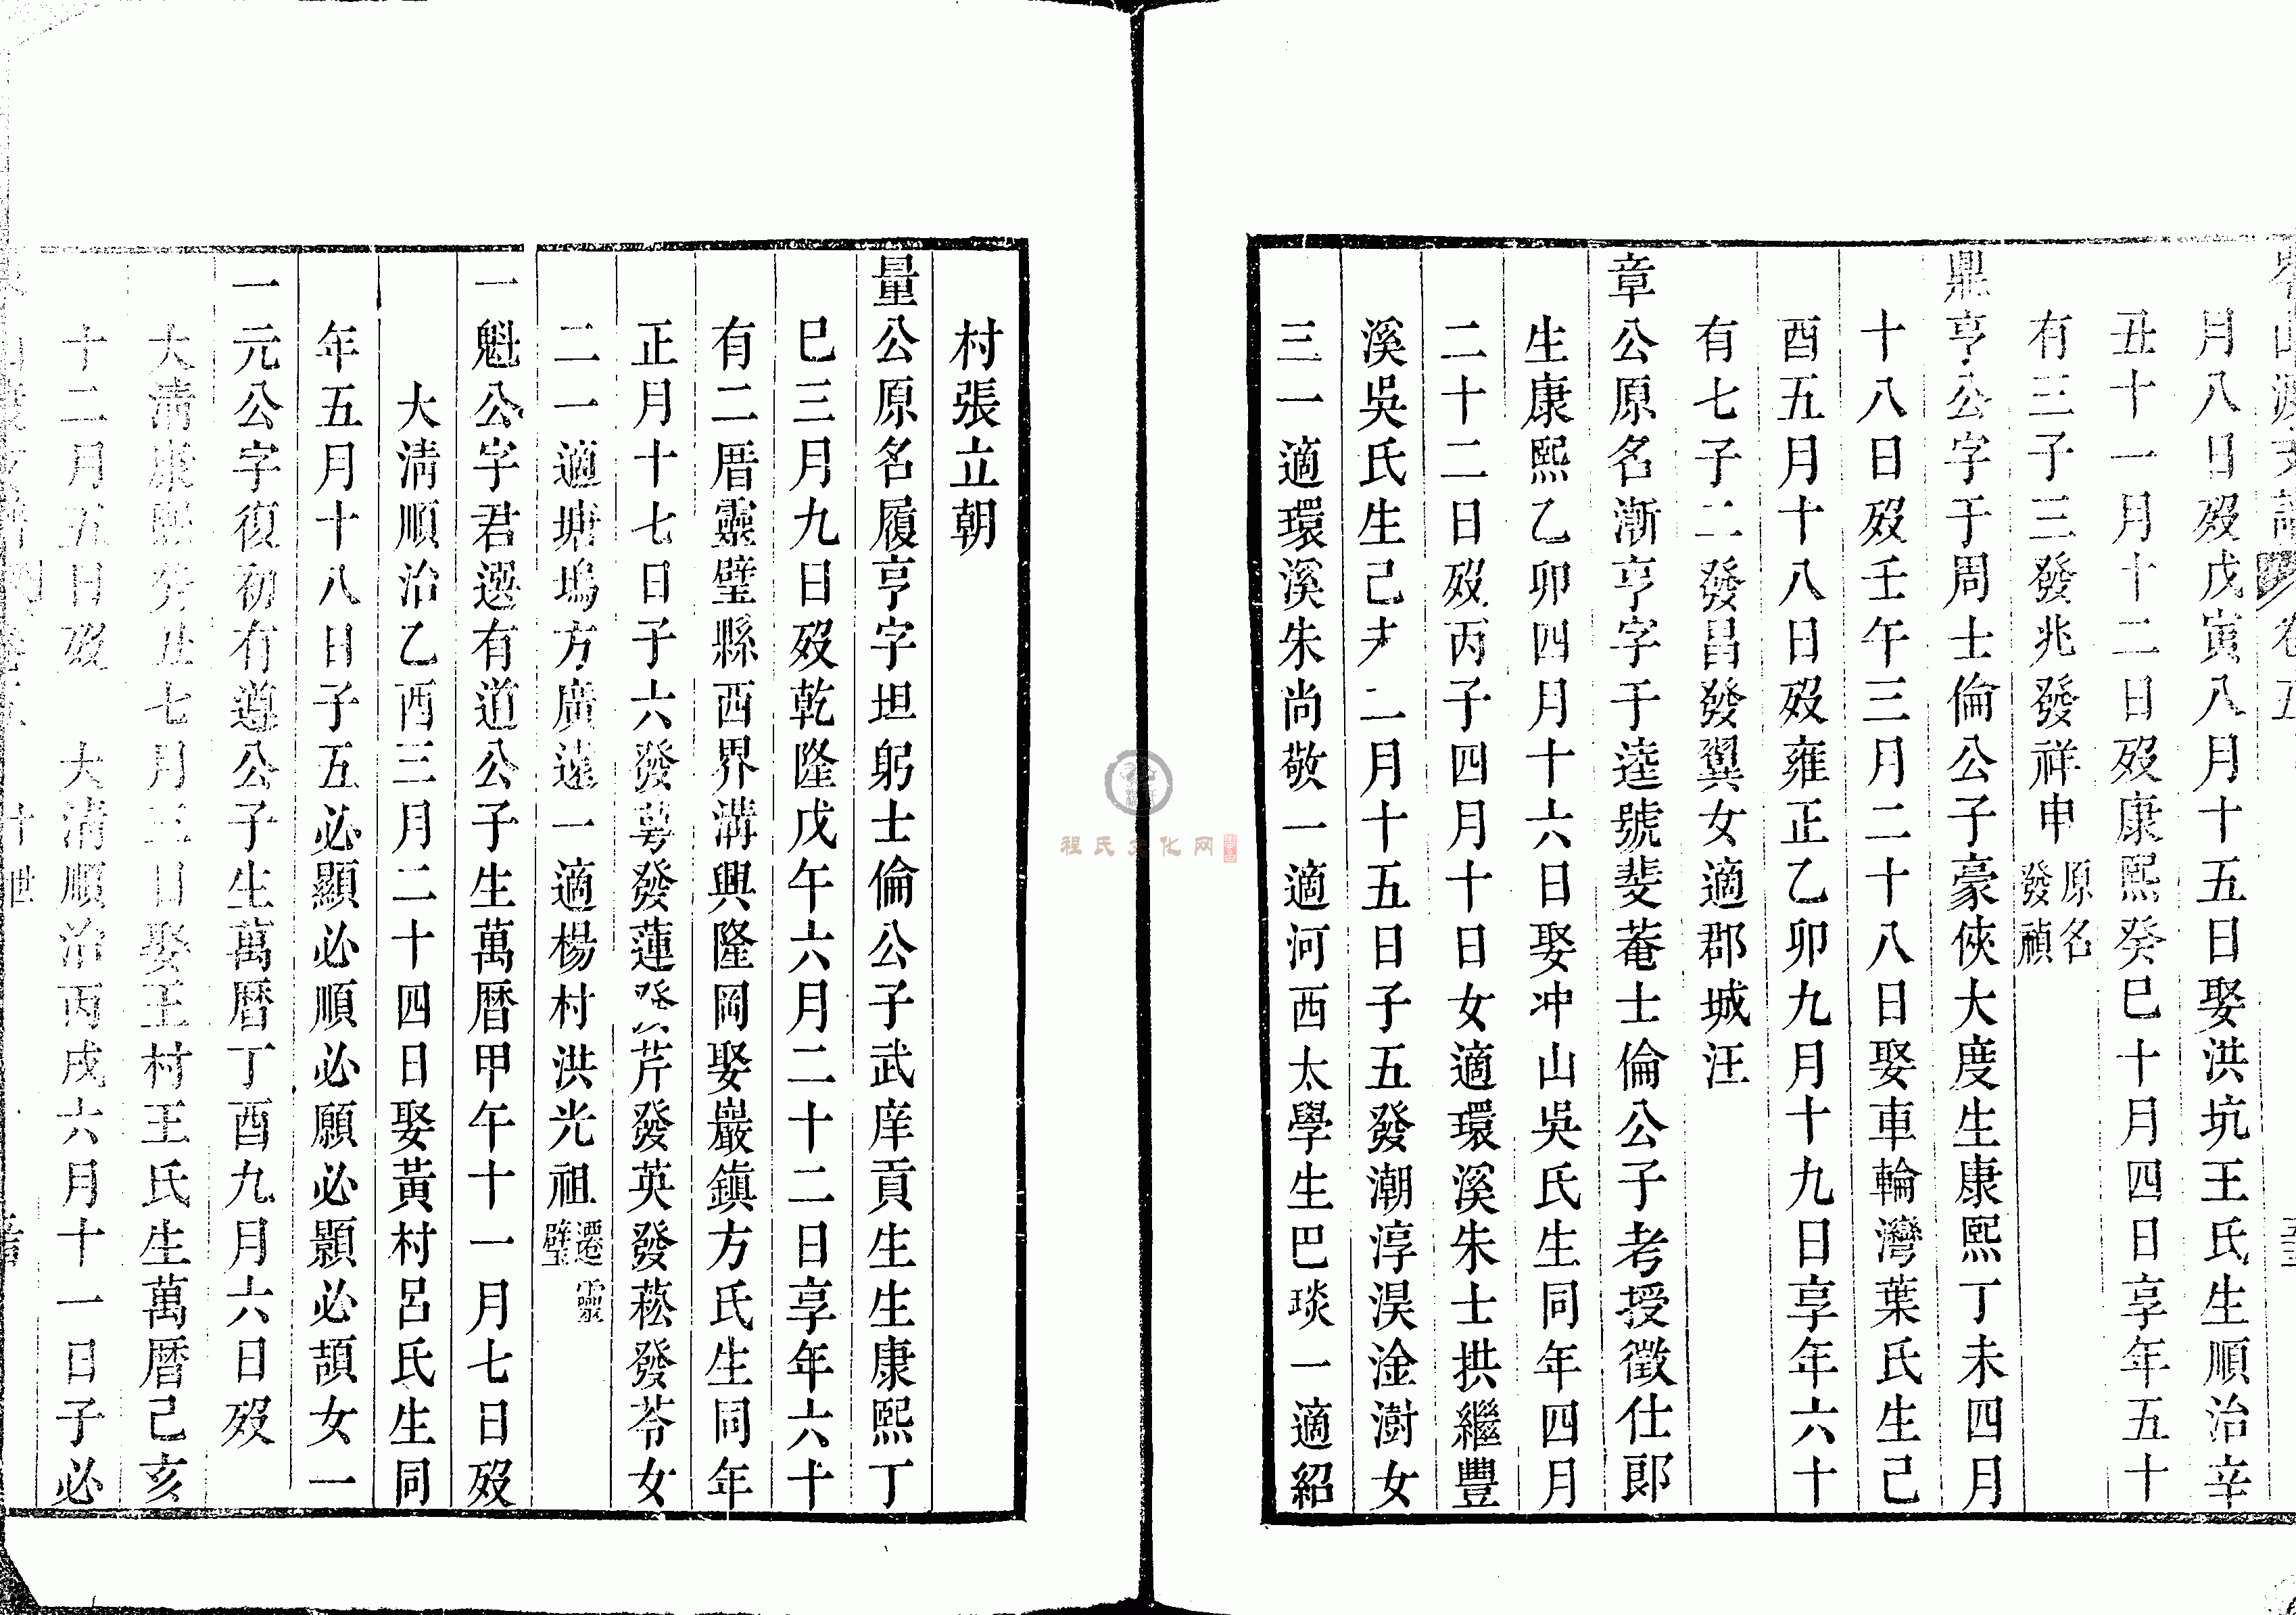 月八日歿戊寅八月十五日娶洪坑王氏生順治辛
丑十一月十二日歿康熙癸巳十月四日享年五十
有三子三發兆發祥申原名發禎
鼎亨公字于周士倫公子豪俠大度生康熙丁未四月
十八日歿壬午三月二十八日娶車輪灣葉氏生己
酉五月十八日歿雍正乙卯九月十九日享年六十
有七子二發昌發翼女適郡城汪
章公原名漸亨字于逵號斐菴士倫公子考授徵仕郎
生康熙乙卯四月十六日娶冲山吳氏生同年四月
二十二日歿丙子四月十日女適環溪朱士拱繼豐
溪吳氏生己二月十五日子五發潮淳淏淦澍女
三一適環溪朱尚敬一適河西太學生巴琰一適紹
村張立朝
量公原名履亨字坦躬士倫公子武庠貢生生康熙丁
巳三月九日歿乾隆戊午六月二十二日享年六十
有二厝靈璧縣西界溝興隆岡娶巖鎮方氏生同年
正月十七日子六發萼發蓮發芹發英發菘發苓女
二一適塘塢方廣遠一適楊村洪光祖遷靈璧
一魁公字君選有道公子生萬曆甲午十一月七日歿
大清順治乙酉三月二十四日娶黃村呂氏生同
年五月十八日子五必顯必順必願必顥必頡女一
一元公字復初有遵公子生萬曆丁酉九月六日歿
大清康熙癸丑七月三日娶王村王氏生萬曆己亥
十二月五日歿 大清順治丙戌六月十一日子必
十世
程氏文化网